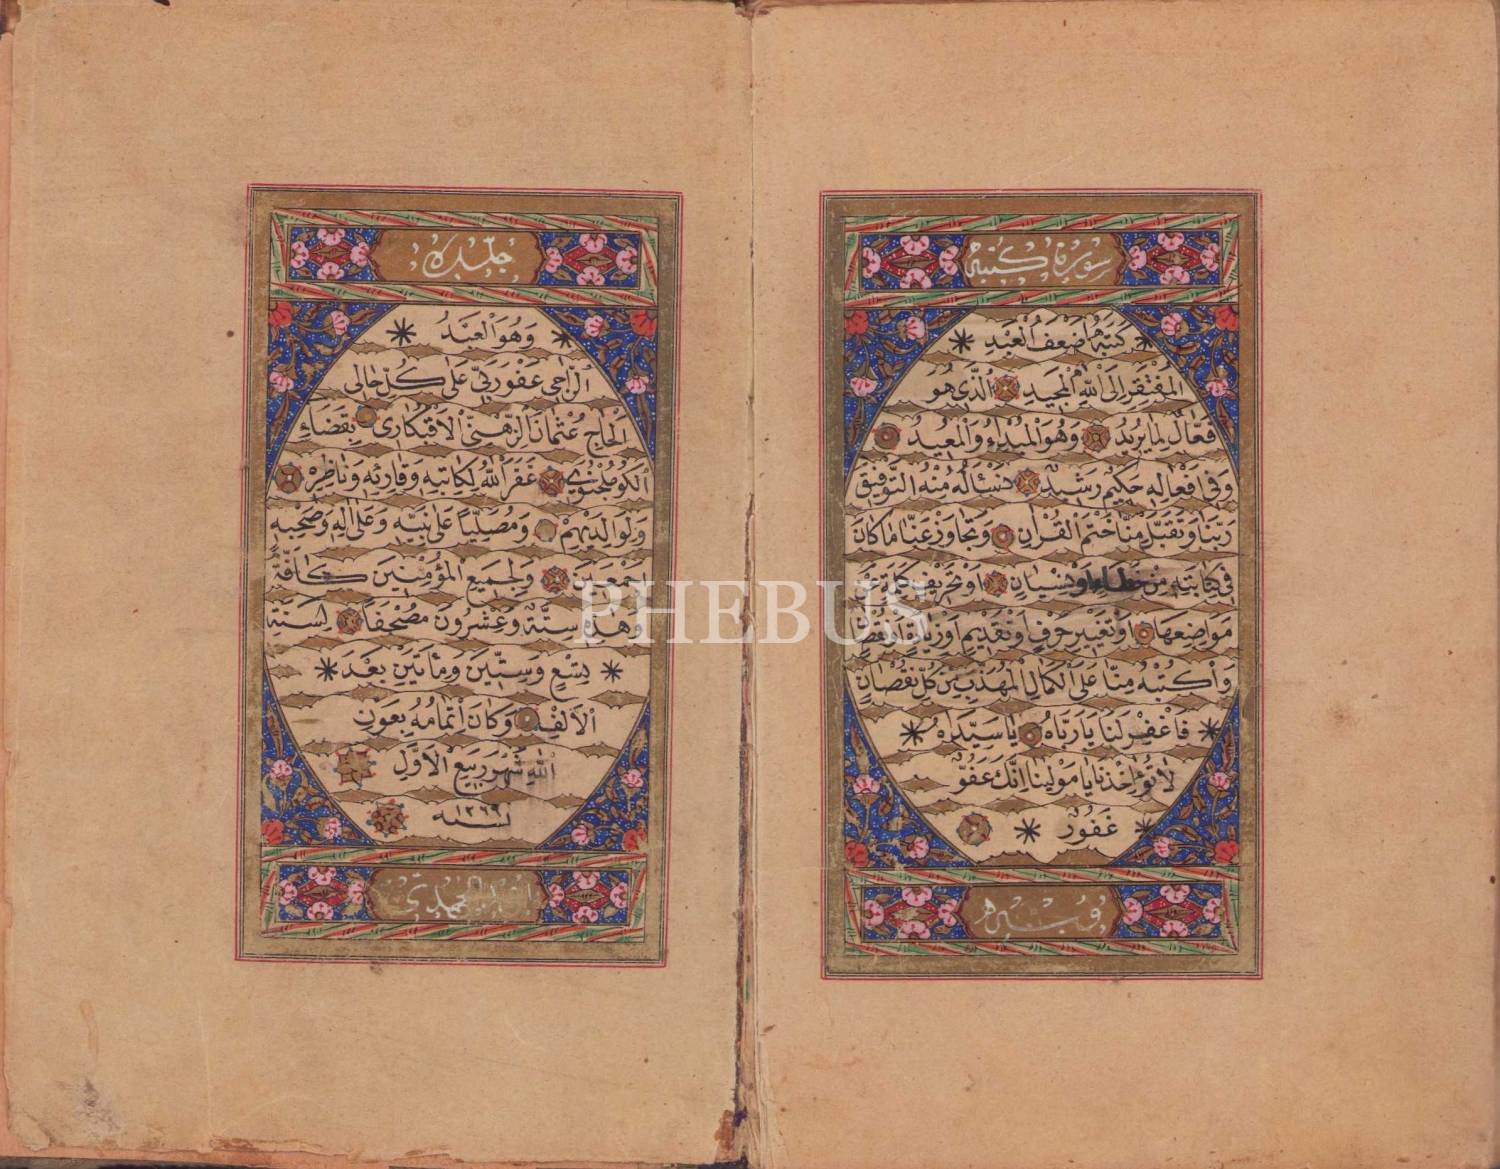 كَتَبَهُ اَضْعَفُ الْعَبْدِ
الْمُفْتَقِرِ اِلَى اللّٰهِ الْمَجِيدِ الَّذِى هُوَ
فَعَّالٌ لِمَا يُرِيدُ وَهُوَ الْمُبْدِاءُ وَالْمُعِيدُ
وَفِى اَفْعَالِهِ حَكِيمٌ رَشِيدٌ نَسْئَالُهُ مِنْهُ التَّوْفِيقَ
رَبَّنَا وَتَقَبَّلْ مِنَّا خَتْمَ الْقُرْاٰنِ وَتَجَاوَزْ عَنَّا مَا كَانَ
فِى كِتَابَتِهِ مِنْ خَطَاءٍ اَوْ نِسْيَانٍ اَوْ تَحْرِيفِ كَلِمَةٍ عَنْ
مَوَاضِعِهَا اَوْ تَغْيِيرِ حَرْفٍ اَوْ تَقْدِيمٍ اَوْ زِيَادَةٍ اَوْ نَقْطٍ
وَاكْتُبْهُ مِنَّا عَلَى الْكَمَالِ الْمُهَذَّبِ مِنْ كُلِّ نُقْصَانٍ
فَاغْفِرْ لَنَا يَا رَبَّاهُ يَا سَيِّدَاهُ
لَا تُؤَاخِذْنَا يَا مَوْلٰينَا اِنَّكَ عَفُوٌّ
غَفُورٌ
وَهُوَ الْعَبْدُ
الرَّاجِى عَفْوَ رَبِّى عَلٰى كُلِّ حَالِى
الْحَاجِ عُثْمَانَ بِقَضَاءِ
غَفَرَ اللّٰهُ لِكَاتِبِهِ وَقَارِئِهِ وَنَاظِرِهِ
وَلِوَالِدَيْهِمْ وَمُصَلِّيًا عَلٰى نَبِيِّهِ وَعَلٰى اٰلِهِ وَصَحْبِهِ
وَلِجَمِيعِ الْمُؤْمِنِينَ كَافَّةً
وَهٰذِهِ سِتَّةٌ وَعِشْرُونَ مُصْحَفًا لِسَنَةِ
تِسْعٍ وَسِتِّينَ وَمِائَتَيْنِ بَعْدَ
الْاَلْفِ وَكَانَ اِتْمَامُهُ بِعَوْنِ
اللّٰهِ شَهْرِ رَبِيعِ الْاَوَّلِ
لسنه ١٢٦٩
PHEBUS